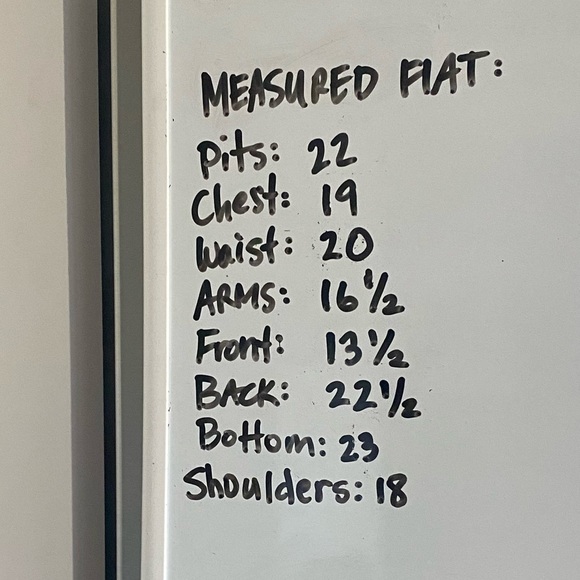 MEASURED FLAT:
Pits: 22
Chest: 19
Waist: 20
ARMS: 16 1/2
Front: 13 1/2
BACK: 22 1/2
Bottom: 23
Shoulders: 18